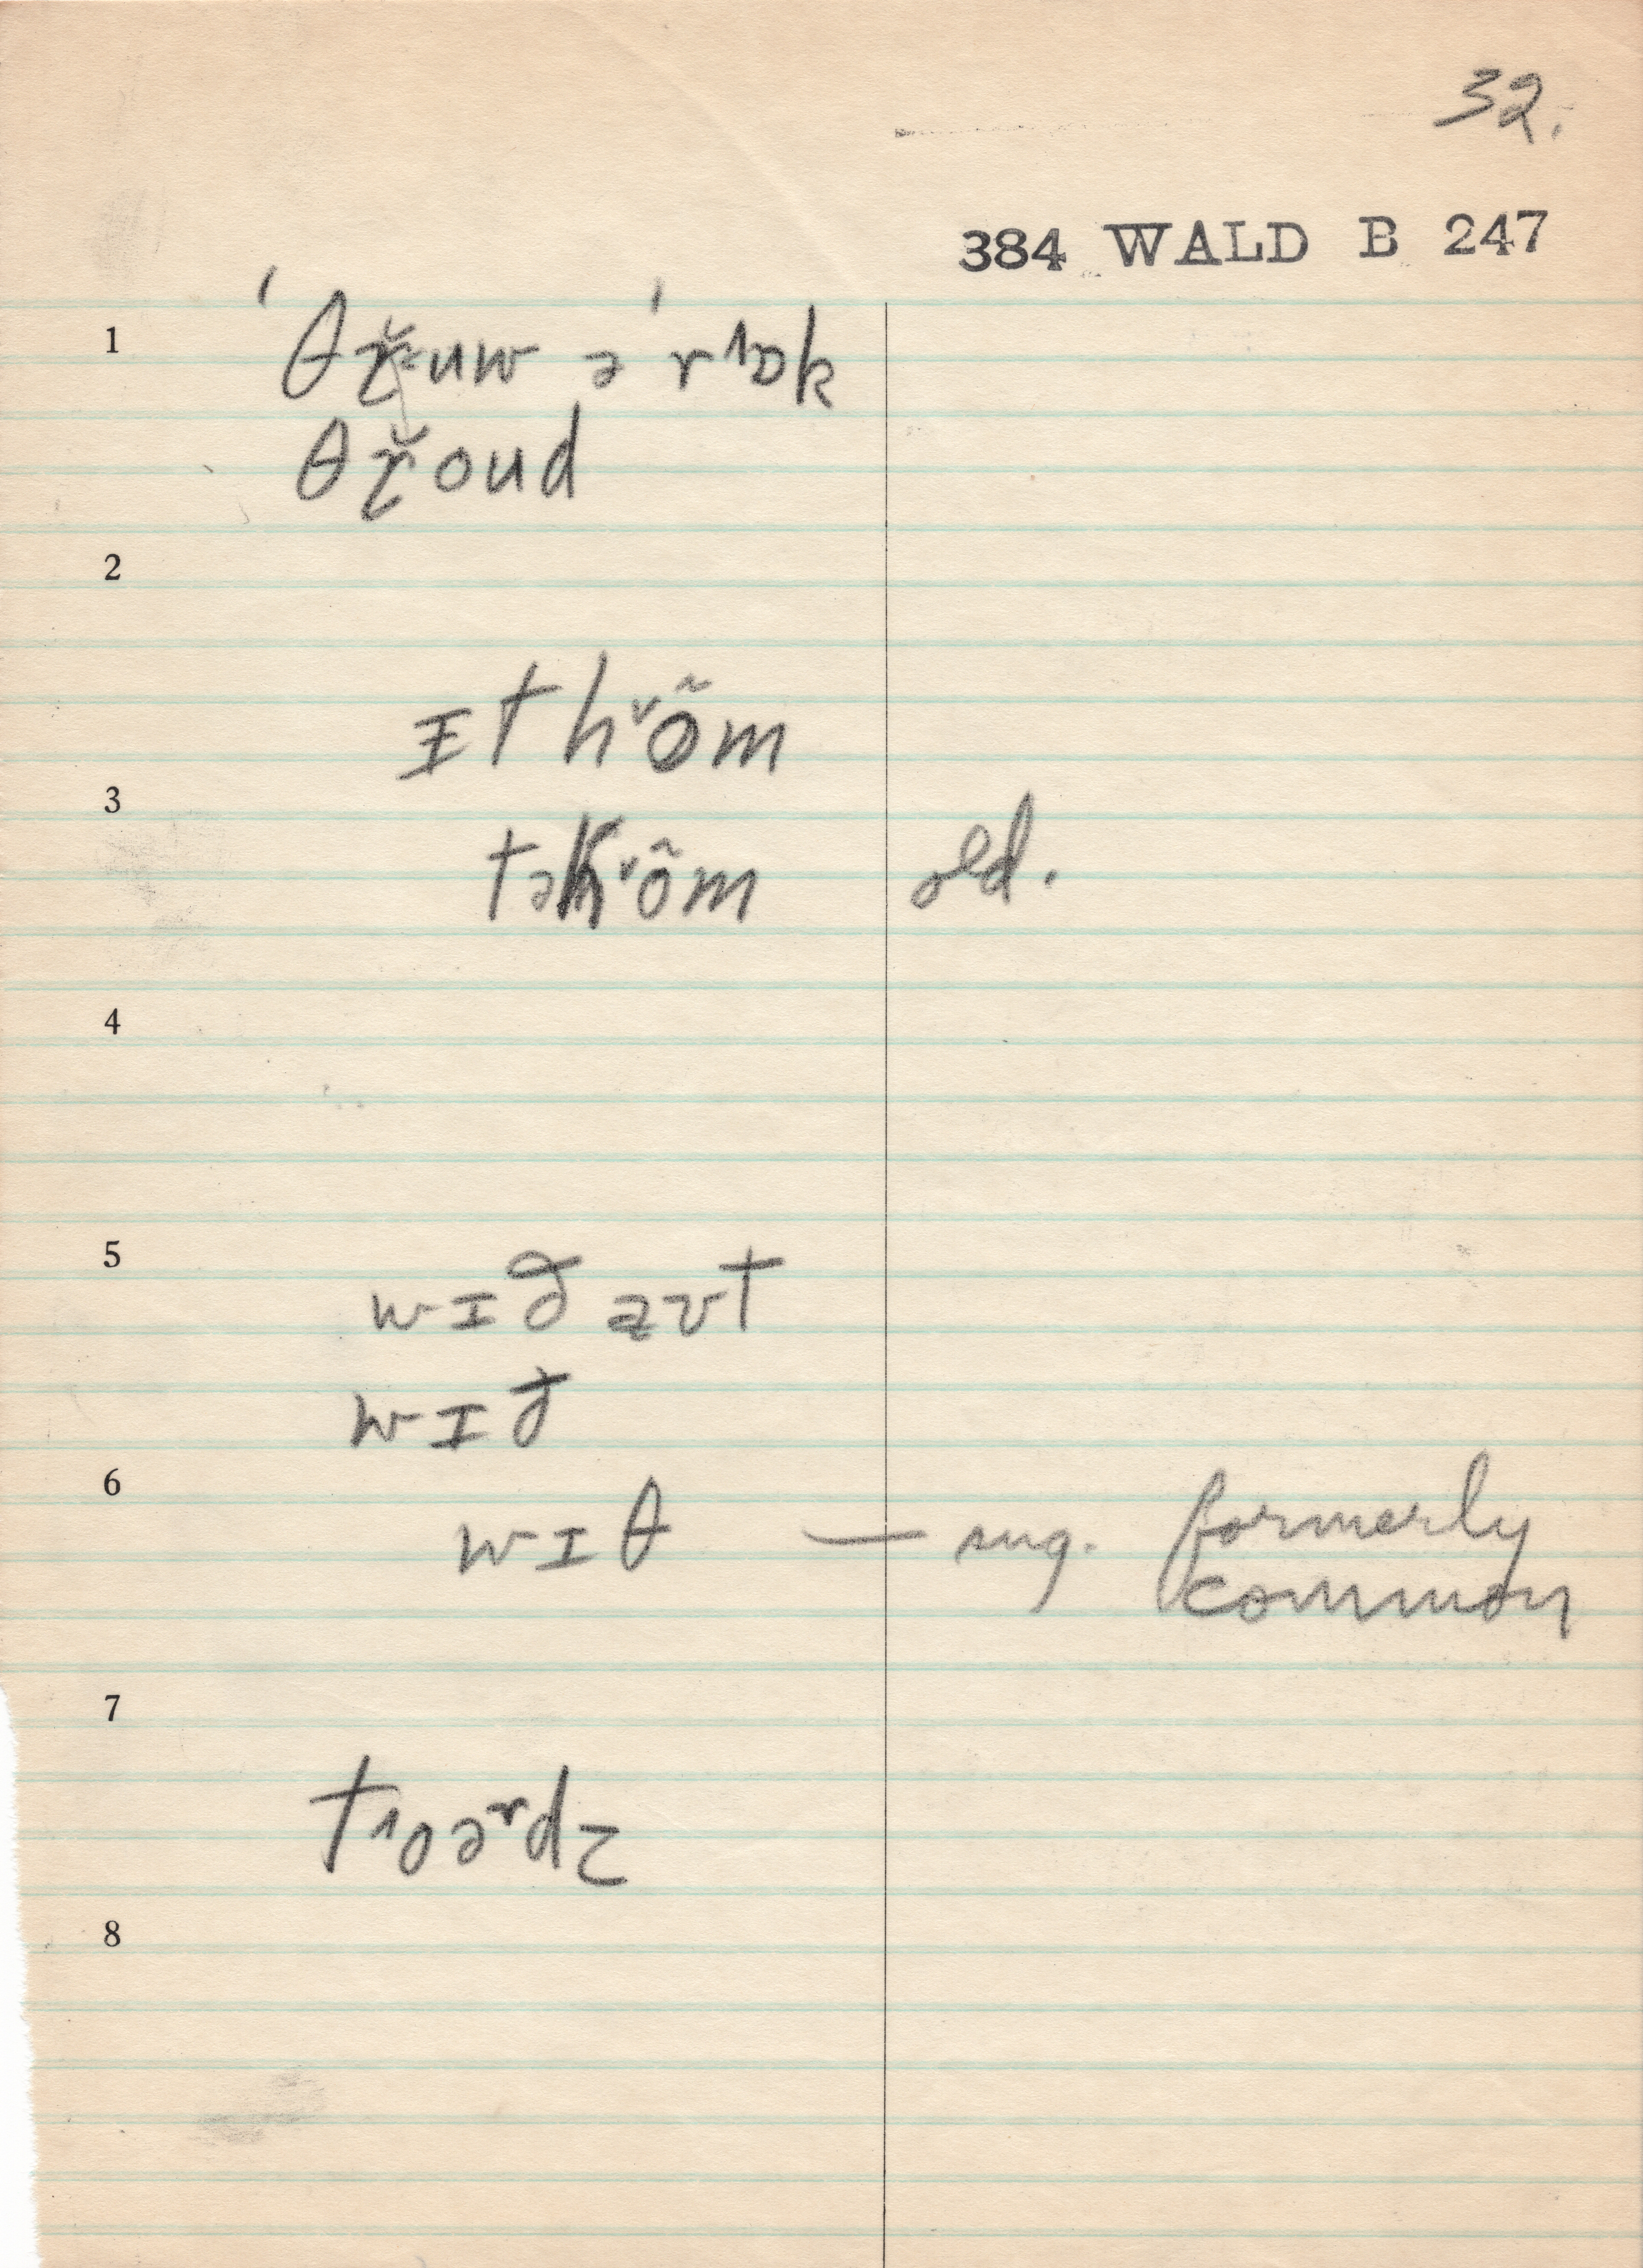 32.
384 WALD B 247
1
ˈθɾ̌uw əˈr˄ɒk
θɾ̌oud
2
ɪt hᵛõm
3
təhᵛõm old.
4
5
wɪð aʊt
wɪð
6
wɪθ — sug. formerly
common
7
t˄oəʳdz
8